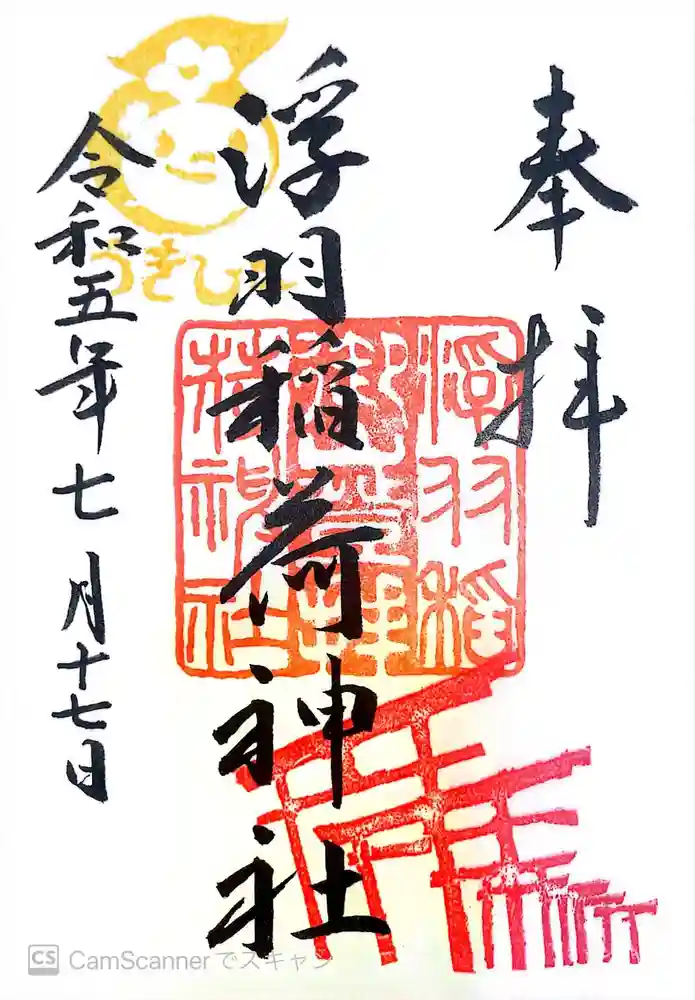 奉拝
浮羽稲荷神社
令和五年七月十七日
浮羽稲
荷神社
うきぴー
CS CamScannerでスキャン